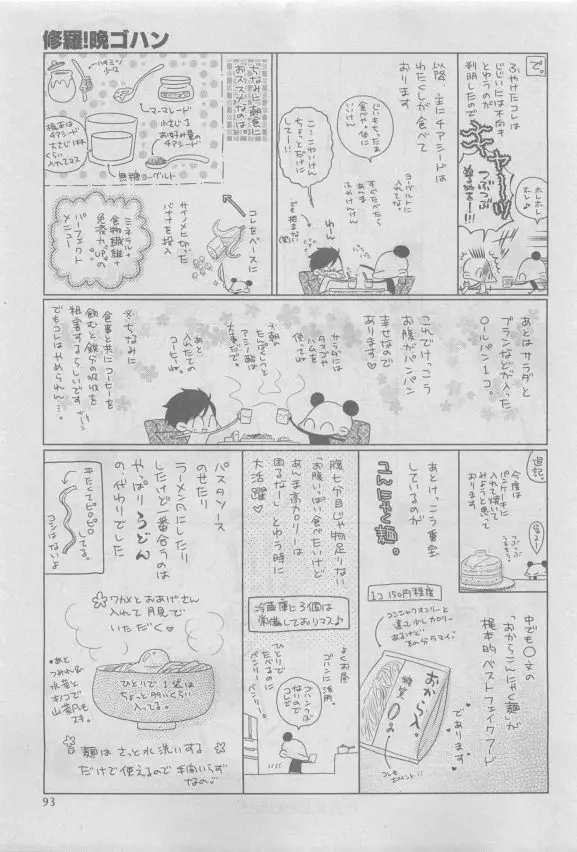 修羅!晩ゴハン
で。
ふやけたコレは
じじいには不向き
とゆうのが
判明したので
キャーッ
つぶつぶ
ホレホレ
ホレ♪
以降 主に4アシードは
わたくしが食べて
おります
じじいもちったぁ
食べや体に
いいけ!
こ…こわいけん
ちょっとだけに
してー!!
ヨーグルトに
入れてな。
すぐたべたら
あんま
ふやけんけん
わーん
でも拒まない
(笑)
ちなみに朝食に
おススメなのは。
ハチミツ
少々
マーマレード
小さじ1
お好み量の
4アシード
梶本は
4アシード
大さじ1杯
くらい
入れてマス
無糖ヨーグルト
コレをベースに
サイノメに切った
バナナを投入
ミネラル+
食物繊維+
免疫力UPの
パーフェクト
メニュー
あとはサラダと
ブランなどが入った
ロールパン1コ。
これでけっこう
お腹がパンパン
幸せなので
あります♡
サラダには
タマゴや
ハムを
使ってね
※朝の
たんぱくしつと
アミノ酸は
大事だで。
あと
入れたての
コーヒーね。
※ちなみに
食事と共にコーヒーを
飲むと鉄分の吸収を
阻害するらしいです
でもコレはやめられん…。
追記。
今度は
パンケーキに
入れて焼いて
みようと思って
おります
つぶつぶ
うるせー!
あとけっこう重宝
しているのが
こんにゃく麺。
腹七分目じゃ物足りない
「お腹いっぱい食べたいけど
あんま高カロリーは
困るなーし」とゆう時に
大活躍♡
冷蔵庫に3個は
常備しておりマス♪
よくお昼
ゴハンに活用。
ひとりで
たべるのに
ベンリーベンリー。
フハンつぶ
ないので
コレで
パスタソース
のせたり
ラーメン風にしたり
したけど一番合うのは
やっぱりうどん
の代わりでした
平たくてピロピロ
してる。
コシはないよ
中でも〇文の
「おからこんにゃく麺」が
梶本的ベストフェイクフード
であります♥
1コ150円程度
コンニャクオンリーと
違って少しカロリー
あるけど
その分ウマイ。
おから入。
糖質
0g
コレも
ポイント!!
ワカメとおあげさん
入れて月見で
いただく♡
ひとりで1袋は
ちょっと多いくらい
入ってる。
●あと
つみれ&
水菜と
キノコで
山菜風も
スキ。
麺はさっと水洗いする
だけで使えるので手間いらず
なの♡
93